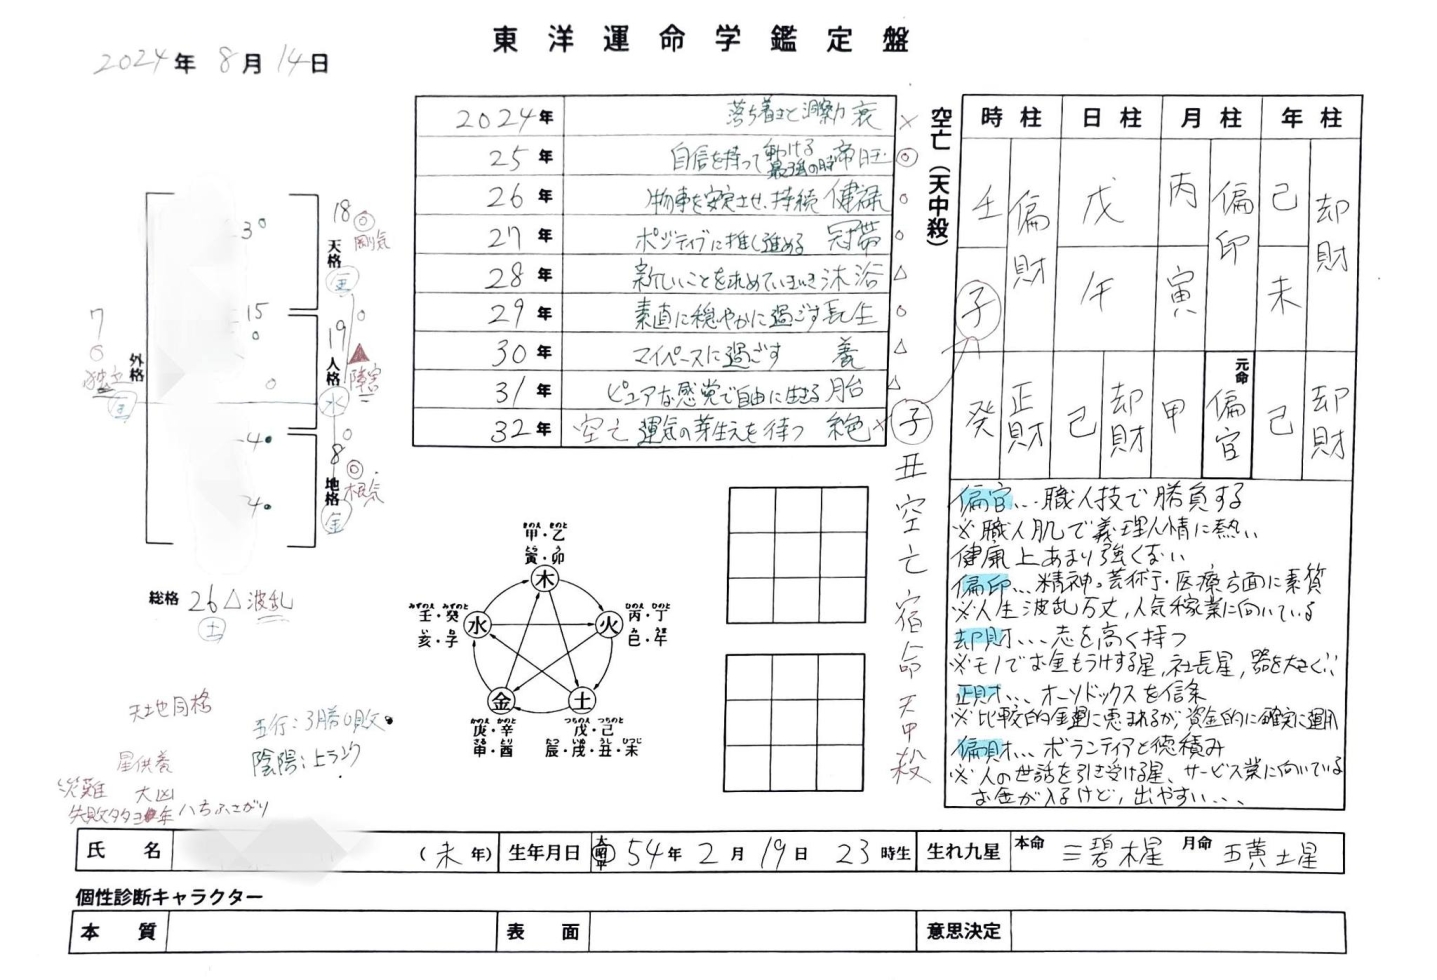 東洋運命学鑑定盤
2024年 8月 14日
2024年 落ち着きと洞察力 衰 ×
25年 自信を持って動ける 最強の時 帝旺 ◎
26年 物事を安定させ、持続 健禄 ○
27年 ポジティブに推し進める 冠帯 ○
28年 新しいことを求めていいき 沐浴 △
29年 素直に穏やかに過ごす 長生 ○
30年 マイペースに過ごす 養 △
31年 ピュアな感覚で自由に生きる 胎 △
32年 空亡 運気の芽生えを待つ 絶 ×
空亡(天中殺)
子丑空亡宿命天中殺
時柱 日柱 月柱 年柱
壬 偏財 戊 丙 偏印 己 却財
子 午 寅 未
癸 正財 己 却財 甲 元命 偏官 己 却財
偏官... 職人技で勝負する
※職人肌で義理人情に熱い
健康上あまり強くない
偏印... 精神。芸術。医療方面に素質
※人生波乱万丈,人気稼業に向いている
却財... 志を高く持つ
※モノでお金もうけする星,社長星,器を大きく
正財... オーソドックスを信条
※比較的金運に恵まれるが、資金的に確実に運用
偏財... ボランティアと徳積み
※人の世話を引き受ける星、サービス業に向いている
お金が入るけど,出やすい...
3○
15
○
○
4●
4●
18◎ 剛気
天格 金
○
19 ▲ 障害
人格 水
○
8◎ 根気
地格 金
7
○
独立
外格 金
総格 26△ 波乱
土
天地同格
五行:3勝0敗
陰陽:上ランク
星供養
災難 大凶
失敗多々ヨ年 ハちふさがり
きのえ きのと
甲・乙
とら う
寅・卯
木
みずのえ みずのと
壬・癸
い ね
亥・子
水
ひのえ ひのと
丙・丁
み うま
巳・午
火
金
かのえ かのと
庚・辛
さる とり
申・酉
土
つちのえ つちのと
戊・己
たつ いぬ うし ひつじ
辰・戌・丑・未
氏名 (未年) 生年月日 大昭平 54年 2月 19日 23時生 生れ九星 本命 三碧木星 月命 五黄土星
個性診断キャラクター
本質 表面 意思決定